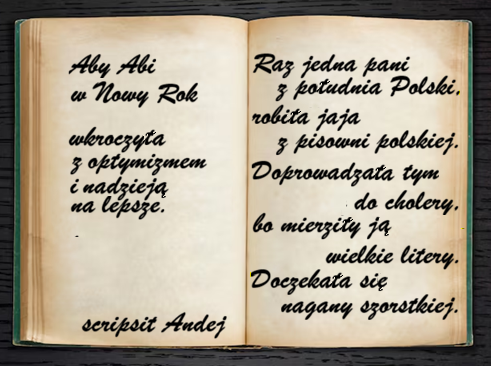 Aby Abi
w Nowy Rok
wkroczyła
z optymizmem
i nadzieją
na lepsze.
scripsit Andej
Raz jedna pani
z południa Polski,
robiła jaja
z pisowni polskiej.
Doprowadzała tym
do cholery,
bo mierziły ją
wielkie litery.
Doczekała się
nagany szorstkiej.